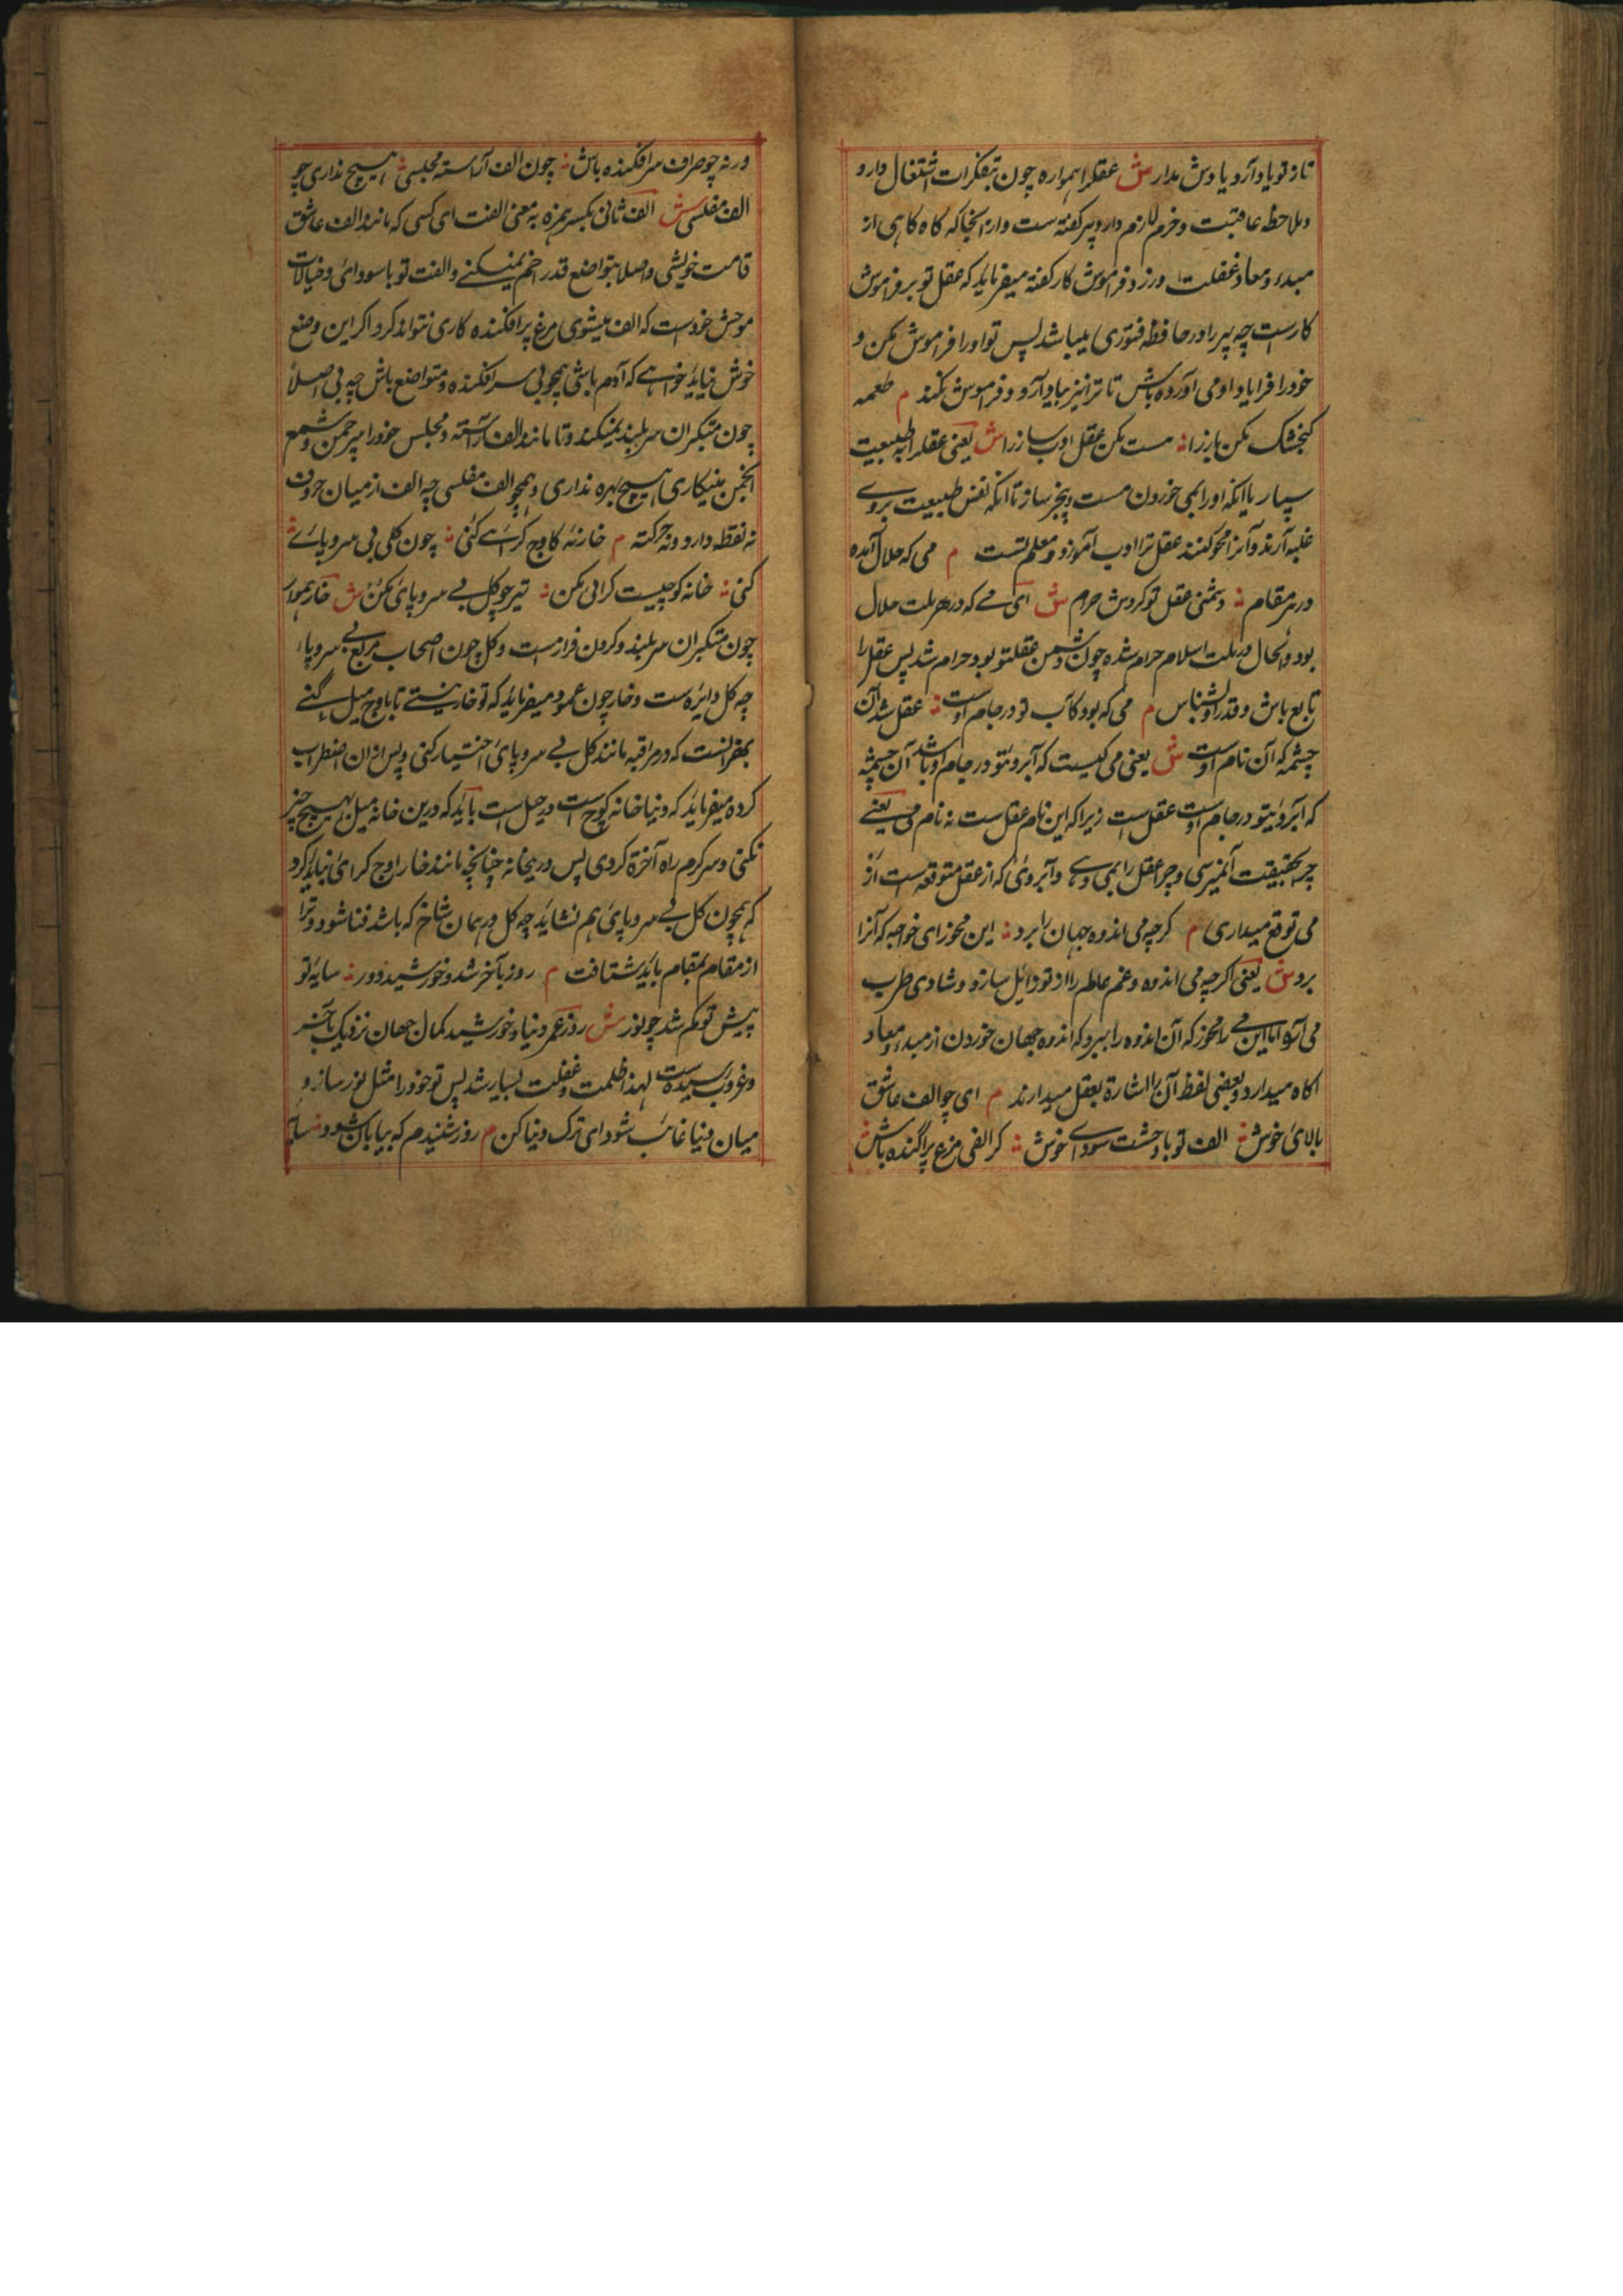 تاز تو یاد آرد یادش مدار ش عقلرا همواره چون بتفکرات اشتغال دارد
و ملاحظه عاقبت و خرم لازم دارد پیر گفته ست و از انجا که گاه گاهی از
مبدء و معاد غفلت ورزد فراموش کار گفته میفرماید که عقل تو پیر فراموش
کارست چه پیر را در حافظه فتوری میباشد پس تو او را فراموش مکن و
خود را فرا یاد او می آورده باش تا ترا نیز بیاد آرد و فراموش نکند م طعمه
گنجشک مکن باز را ۞ مست مکن عقل ادب ساز را ش یعنی عقلرا به طبیعت
مسپار یا آنکه او را بمی خوردن مست و بیخبر مساز تا آنکه نفس طبیعت بروی
غلبه آرند و آنرا محو کنند عقل ترا ادب آموز و معلم تست م می که حلال آمده
در هر مقام ۞ دشمنی عقل تو کردش حرام ش ای می که در هر ملت حلال
بود والحال در ملت اسلام حرام شده چون دشمن عقل تو بود حرام شد پس عقل را
تابع باش و قدر او بشناس م می که بود کآب تو در جام اوست ۞ عقل شد آن
چشمه که آن نام اوست ش یعنی می کیست که آبروی تو در جام او باشد آن چشمه
که آبروی تو در جام اوست عقل ست زیرا که این نام عقل ست نه نام می یعنی
چرا بحقیقت آن نمیرسی و چرا عقل را بمی دهی و آبروی که از عقل متوقعه است از
می توقع میداری م گرچه می اندوه جهان را برد ۞ این مخور ای خواجه که آنرا
برد ش یعنی اگر چه می اندوه و غم عالم را از تو زایل سازد و شادی و طرب
می آرد اما این می را مخور که آن اندوه را ببرد که اندوه جهان خوردن از مبدء و معاد
آگاه میدارد و بعضی لفظ آن را اشارة بعقل میدارند م ای چو الف عاشق
بالای خویش ۞ الف تو با وحشت سودای خویش ۞ گر الفی مرغ پراگنده باش ۞
ورنه چو حرف سرافکنده باش ۞ چون الف آراسته مجلسی ۞ هیچ نداری چو
الف مفلسی ش الف ثانی بکسر همزه به معنی الفت ای کسی که مانند الف عاشق
قامت خویشی و اصلا بتواضع قد را خم نمیکنی و الفت تو با سودای و خیالات
موحش خودست که الف میشوی مرغ پرافکنده کاری نتواند کرد و اگر این وضع
خوش نیاید خواهی که آدم باشی همچو بی سرافکنده و متواضع باش چه بی اصلا
چون متکبران سر بلند نمیکند و تا مانند الف آراسته و مجلس خود را میر چمن و شمع
انجمن مینگاری هیچ بهره نداری و همچو الف مفلسی چه الف از میان حروف
نه نقطه دارد و نه حرکته م خار نه کاوج گرای کنی ۞ چون گلی بی سر و پای ۞
کنی ۞ خانه کوچیست گرانی مکن ۞ تیر چو گل بی سر و پای مکن ش خار همواره
چون متکبران سر بلند و گردن فرازست و گل چون اصحاب مربع بی سر و پا
چه گل دایره ست و خار چون عمود میفرماید که تو خار نیستی تا باوج میل کنی
بقرالنست که در مراقبه مانند گل بی سر و پای اختیار کنی و پس از ان اضطراب
کرده میفرماید که دنیا خانه کوچ ست و رحیل است باید که درین خانه میل بهیچ چیز
نکنی و سرگرم راه آخرة گردی پس درینخانه چنانچه مانند خار اوج گرای نباید کرد
که همچون گل بی سر و پای هم نشاید چه گل در همان شاخ که باشد فنا شود و ترا
از مقام بمقام باید شتافت م روز بآخر شد و خورشید دور ۞ سایه تو
پیش تو گم شد چو نور ش روز عمر دنیا و خورشید کمال جهان نزدیک بآخر
و غروب رسیده ست لهذا ظلمت و غفلت بسیار شد پس تو خود را مثل نور ساز و
میان دنیا غائب شو و ای ترک دنیا کن م روز شنیدم که بپایان شود ۞ سایه